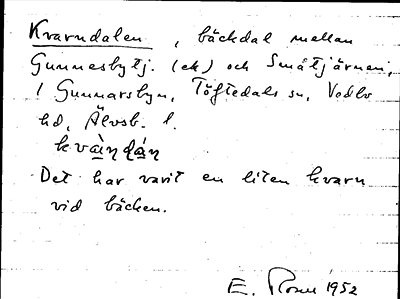 Kvarndalen, bäckdal mellan
Gunnesbytj. (ek) och Småtjärnen,
i Gunnarsbyn, Töftedals sn, Vedbo
hd, Älvsb. l.
kvàṇḍán
Det har varit en liten kvarn
vid bäcken.
E. 1952